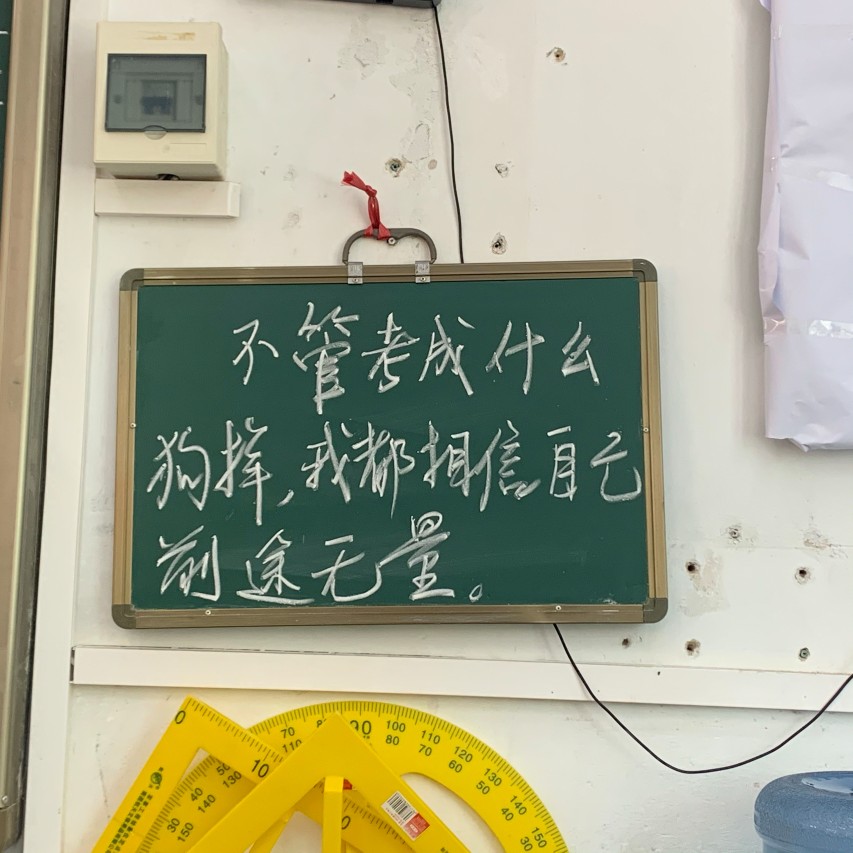 不管考成什么
狗样,我都相信自己
前途无量。
0
10
50
40
30
130
140
150
70
80
90
100
110
120
130
140
150
110
80
70
60
50
40
30
0